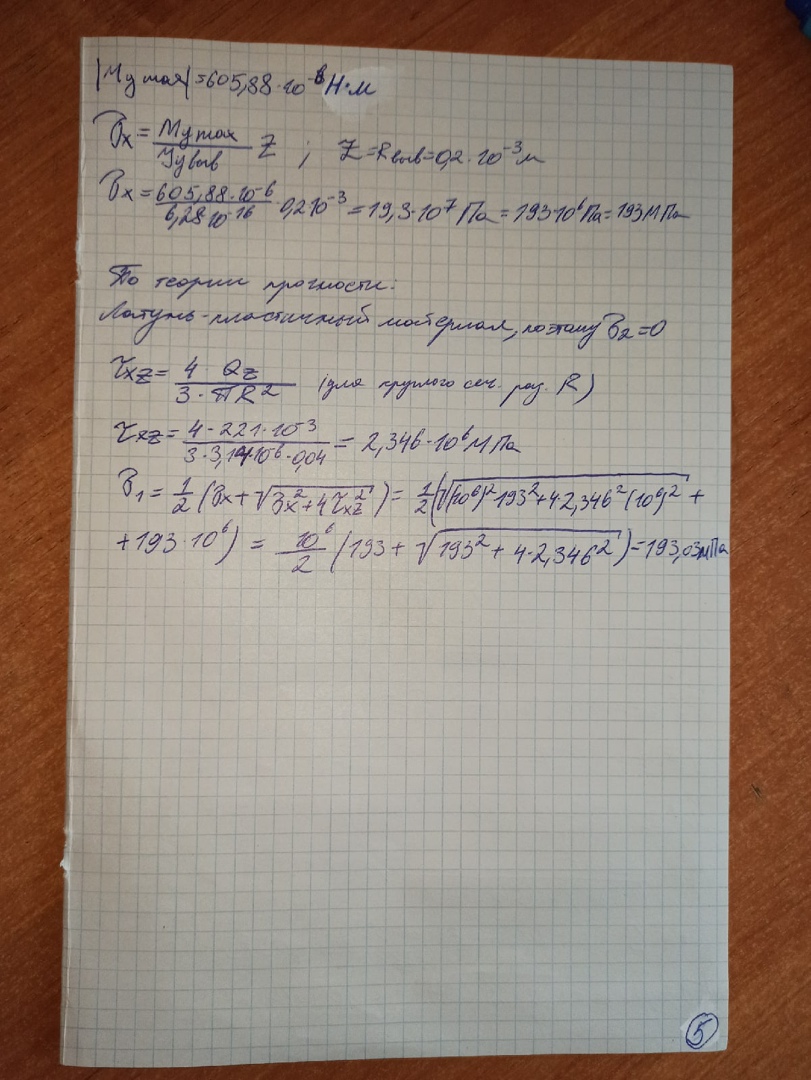 |My max| = 605,88·10⁻⁶ Н·м
σx = My max / Jy выв Z ; Z = Rвыв = 0,2·10⁻³ м
σx = 605,88·10⁻⁶ / 6,28·10⁻¹⁶ · 0,2·10⁻³ = 19,3·10⁷ Па = 193·10⁶ Па = 193 МПа
По теории прочности:
Латунь - пластичный материал, поэтому σ2 = 0
τxz = 4·Qz / 3·πR² (для круглого сеч. рад. R)
τxz = 4·221·10⁻³ / 3·3,14·10⁻⁶·0,04 = 2,346·10⁶ МПа
σ1 = 1/2 (σx + √(σx² + 4τxz²)) = 1/2 (√((10⁶)²·193² + 4·2,346²(10⁶)²) +
+ 193·10⁶) = 10⁶/2 (193 + √(193² + 4·2,346²)) = 193,03 МПа
5